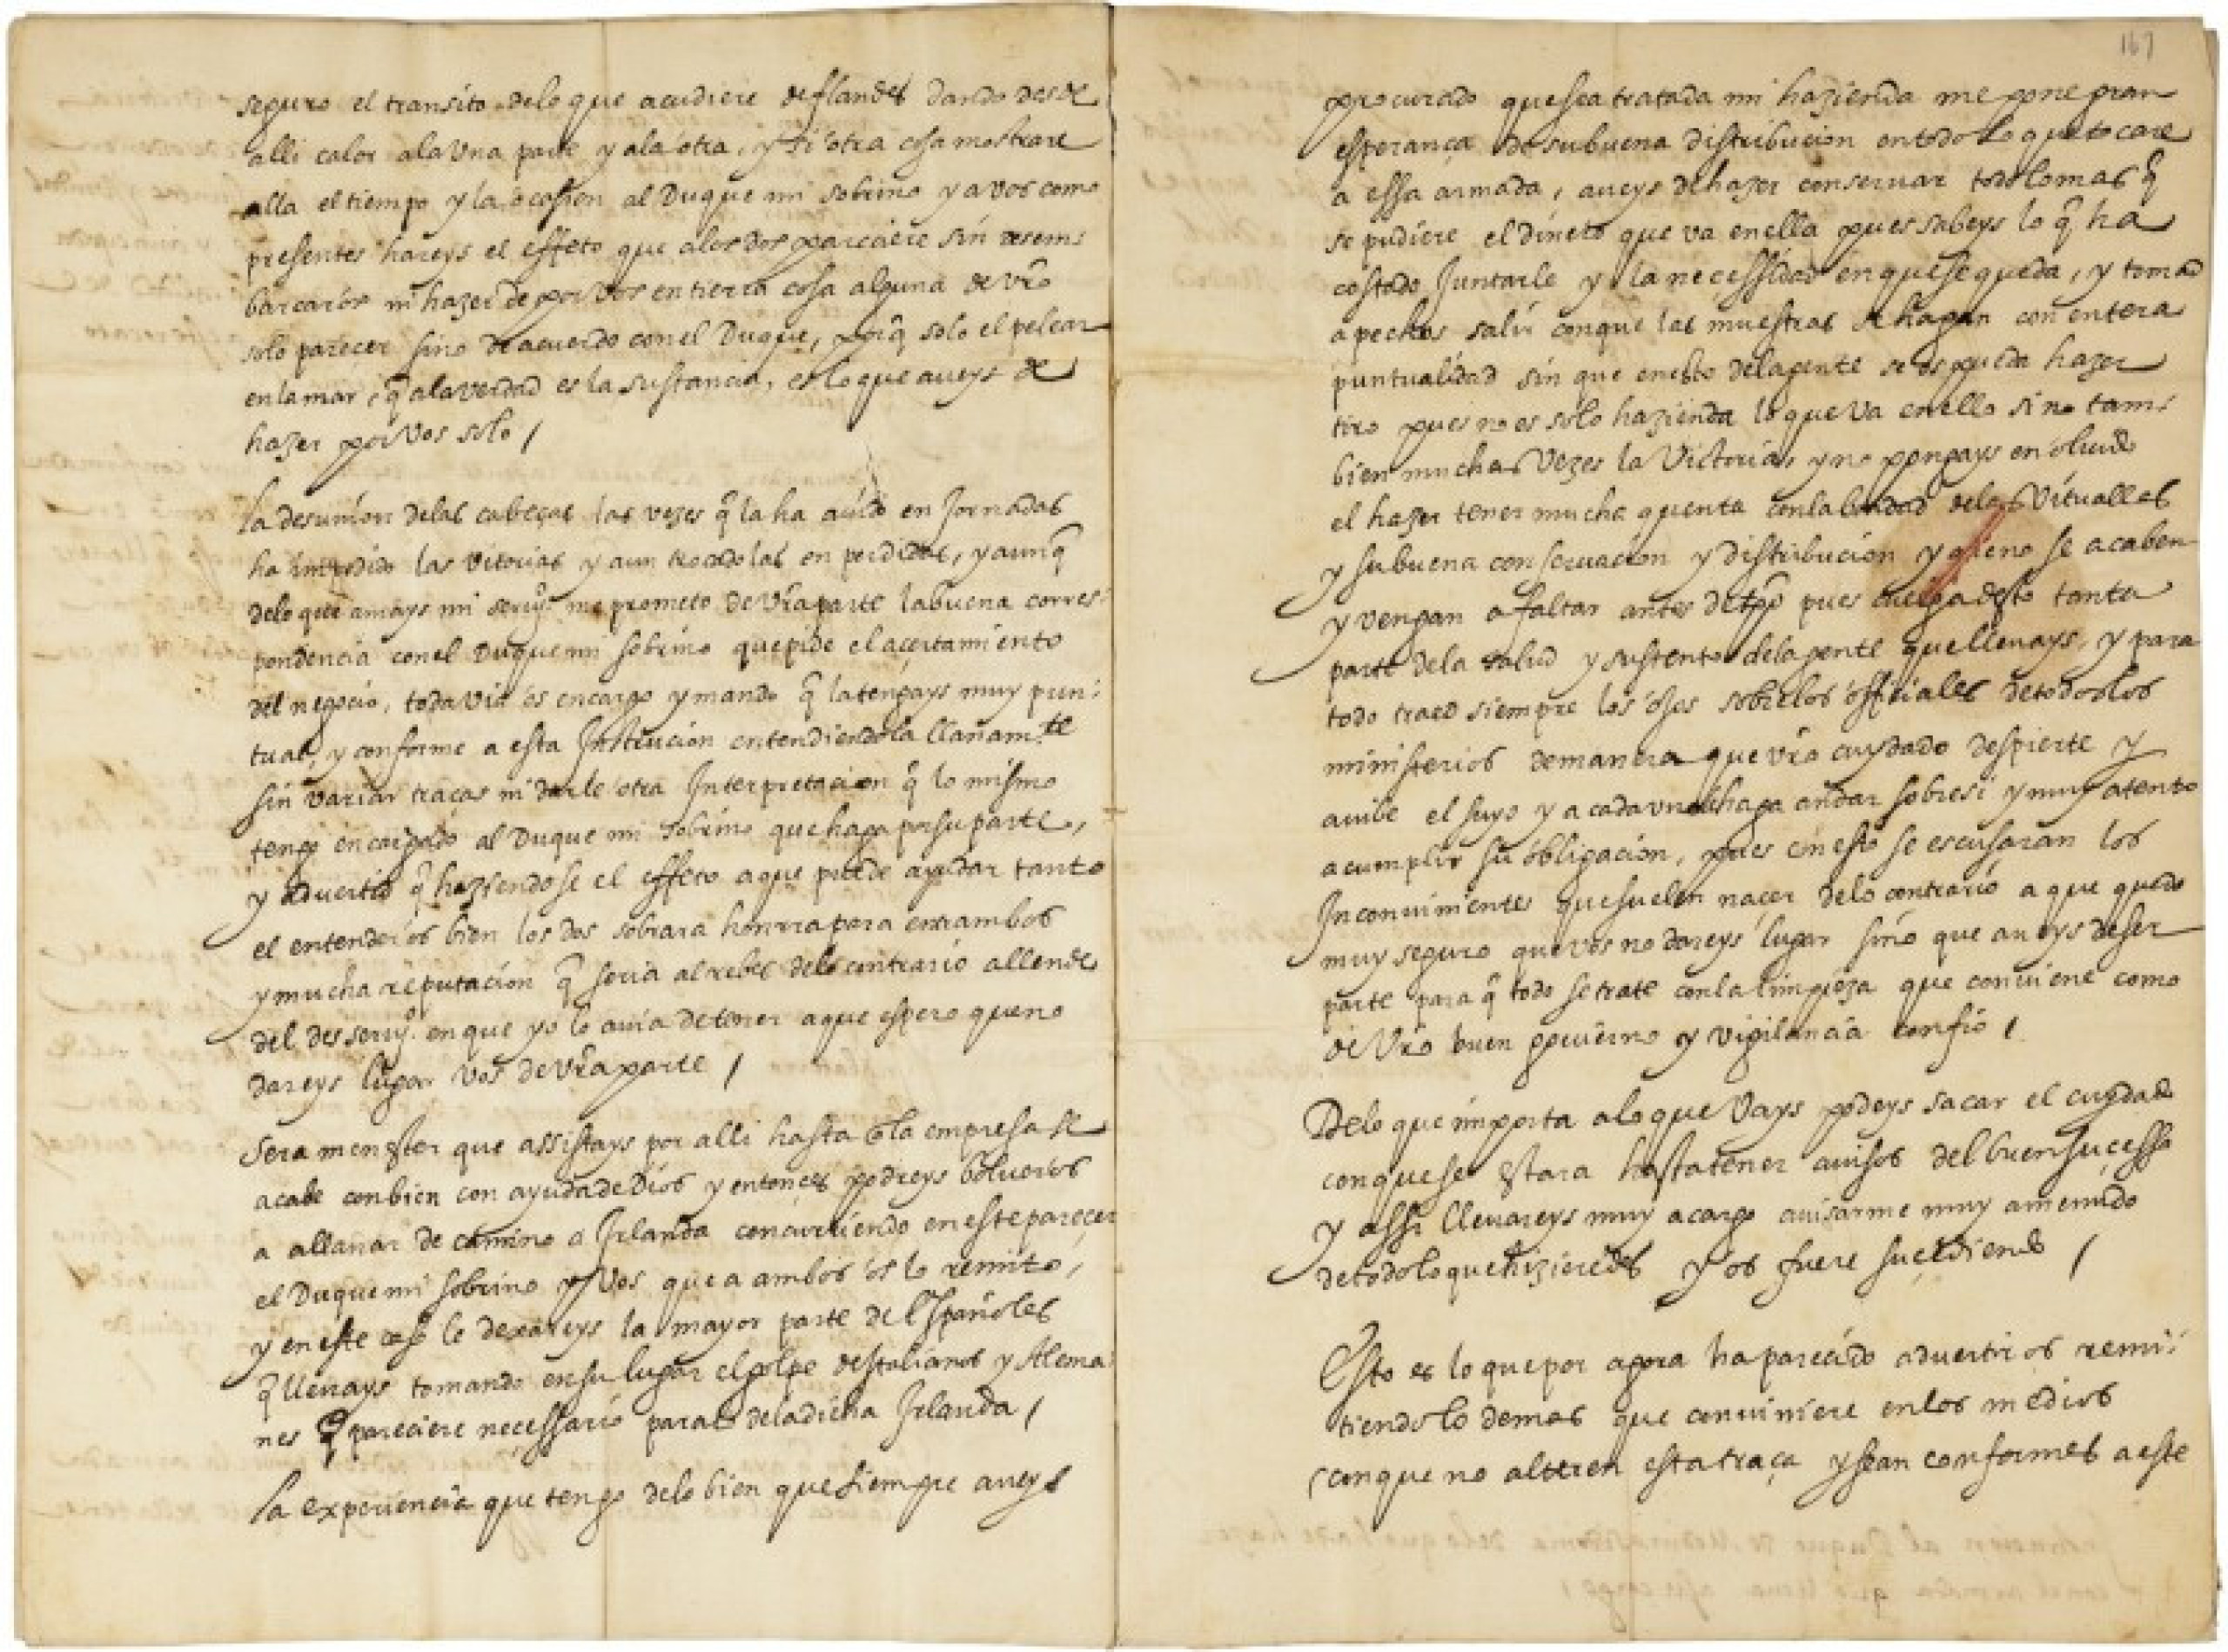 seguro el transito delo que acudiere de flandes dando desde
alli calor ala una parte y ala otra, y si otra cosa mostrare
alla el tiempo y la ocasion al Duque mi sobrino y a vos como
presentes hareys el effeto que alos dos pareciere sin desem-
barcaros ni hazer de por vos en tierra cosa alguna de vro
solo parecer sino de acuerdo con el Duque, porq solo el pelear
en la mar, q ala verdad es la sustancia, es lo que aueys de
hazer por vos solo /
La desunion delas cabeças las vezes q la ha auido en Jornadas
ha impedido las vitorias y aun trocado las en perdidas, y aunq
delo que amays mi seruº me prometo de vra parte la buena corres-
pondencia con el Duque mi sobrino que pide el acertamiento
del negocio, toda via os encargo y mando q la tengays muy pun-
tual, y conforme a esta Instrucion entendiendola llanamte
sin variar traças ni darle otra Interpretacion q lo mismo
tengo encargado al Duque mi sobrino que haga por su parte,
y aduertid q haziendose el effeto a que puede ayudar tanto
el entenderos bien los dos sobrara honrra para entrambos
y mucha reputacion q seria al rebes delo contrario allende
del desseruº en que yo lo auia de tener a que espero que no
dareys lugar vos de vra parte /
Sera menester que assistays por alli hasta q la empresa se
acabe con bien con ayuda de Dios y entonces podreys bolueros
a allanar de camino a Irlanda concurriendo en este parecer
el Duque mi sobrino y Vos que a ambos os lo remito,
y en este caso le dexareys la mayor parte de españoles
q lleuays tomando en su lugar el golpe de Italianos y Alema-
nes q pareciere necessario para lo dela dicha Irlanda /
La experiencia que tengo delo bien que siempre aueys
167
procurado que sea tratada mi hazienda me pone gran
esperança de su buena distribucion en todo lo que tocare
a essa armada, aueys de hazer conseruar todo lo mas q
se pudiere el dinero que va en ella pues sabeys lo q ha
costado Juntarle y la necessidad en que se queda, y tomad
a pechos salir con que las muestras se hagan con entera
puntualidad sin que en esto dela gente se os pueda hazer
tiro pues no es solo hazienda lo que va en ello sino tam-
bien muchas vezes la Victoria, y no pongays en oluido
el hazer tener mucha quenta con la bondad delas Vituallas
y su buena conseruacion y distribucion y que no se acaben
y vengan a faltar antes de tpo pues cuelga desto tanta
parte dela salud y sustento dela gente que lleuays, y para
todo traed siempre los ojos sobre los officiales de todos los
ministerios de manera que vro cuydado despierte y
auibe el suyo y a cada uno haga andar sobre si y muy atento
a cumplir su obligacion, pues con esto se escusaran los
Inconuinientes que suelen nacer delo contrario a que quedo
muy seguro que vos no dareys lugar sino que aueys de ser
parte para q todo se trate con la limpieza que conuiene como
de Vro buen gouierno y vigilancia confio /
Delo que importa a lo que Vays podeys sacar el cuydado
con que se estara hasta tener auisos del buen sucesso
y assi lleuareys muy a cargo auisarme muy a menudo
de todo lo que hizieredes y os fuere sucediendo /
Esto es lo que por agora ha parecido aduertiros remi-
tiendo lo demas que conuiniere en los medios
(con que no alteren esta traça y sean conformes a este